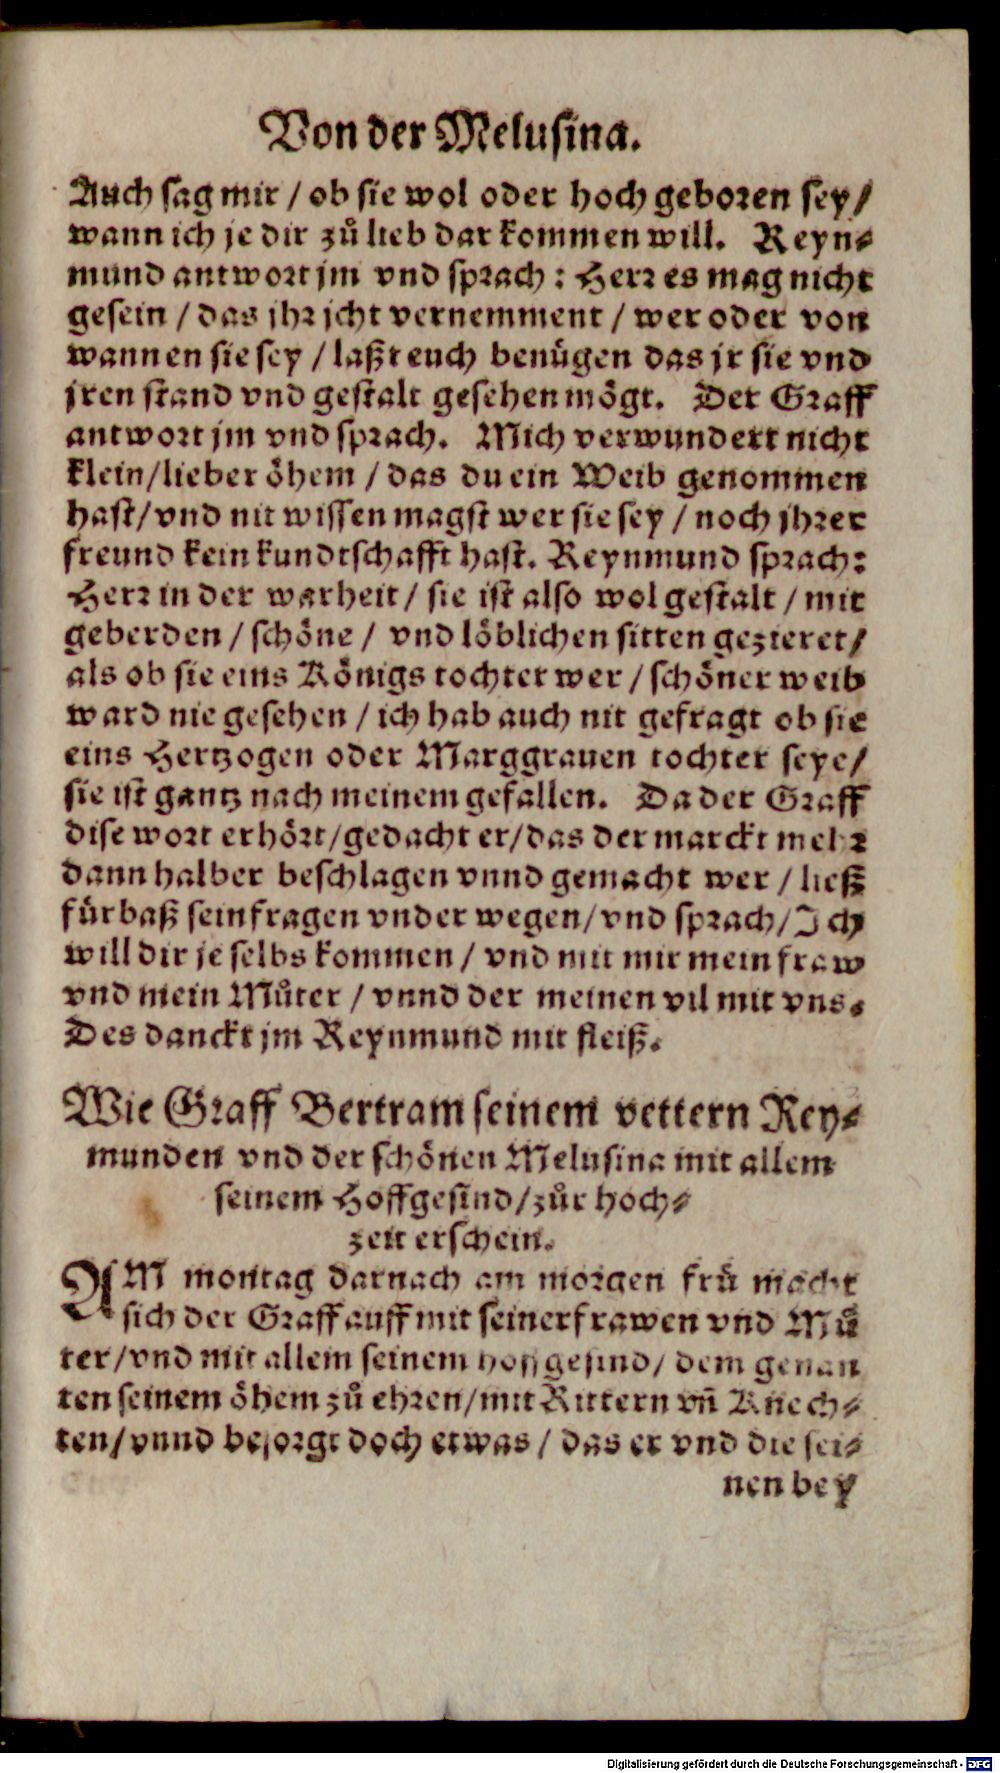 Von der Melusina.
Auch sag mir / ob sie wol oder hoch geboren sey /
wann ich je dir zů lieb dar kommen will. Reyn-
mund antwort jm vnd sprach : Herr es mag nicht
gesein / das jhr jcht vernemment / wer oder von
wannen sie sey / laßt euch benügen das jr sie vnd
jren stand vnd gestalt gesehen mögt. Der Graff
antwort jm vnd sprach. Mich verwundert nicht
klein / lieber öhem / das du ein Weib genommen
hast / vnd nit wissen magst wer sie sey / noch jhrer
freund kein kundtschafft hast. Reynmund sprach:
Herr in der warheit / sie ist also wol gestalt / mit
geberden / schöne / vnd löblichen sitten gezieret /
als ob sie eins Königs tochter wer / schöner weib
ward nie gesehen / ich hab auch nit gefragt ob sie
eins Hertzogen oder Marggrauen tochter seye /
sie ist gantz nach meinem gefallen. Da der Graff
dise wort erhört / gedacht er / das der marckt mehr
dann halber beschlagen vnnd gemacht wer / ließ
fürbaß sein fragen vnder wegen / vnd sprach / Ich
will dir je selbs kommen / vnd mit mir mein fraw
vnd mein Můter / vnnd der meinen vil mit vns.
Des danckt jm Reynmund mit fleiß.
Wie Graff Bertram seinem vettern Rey-
munden vnd der schönen Melusina mit allem
seinem Hoffgesind / zůr hoch-
zeit erschein.
AM montag darnach am morgen frů macht
sich der Graff auff mit seiner frawen vnd Mů
ter / vnd mit allem seinem hoffgesind / dem genan
ten seinem öhem zů ehren / mit Rittern vñ Knech-
ten / vnnd besorgt doch etwas / das er vnd die sei-
nen bey
Digitalisierung gefördert durch die Deutsche Forschungsgemeinschaft - DFG